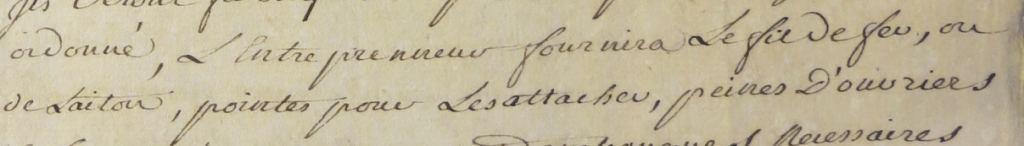 ordonné, L'Entreprenneur fournira Le fil de fer, ou
de Laiton, pointes pour Les attacher, peines D'ouvriers
Necessaires